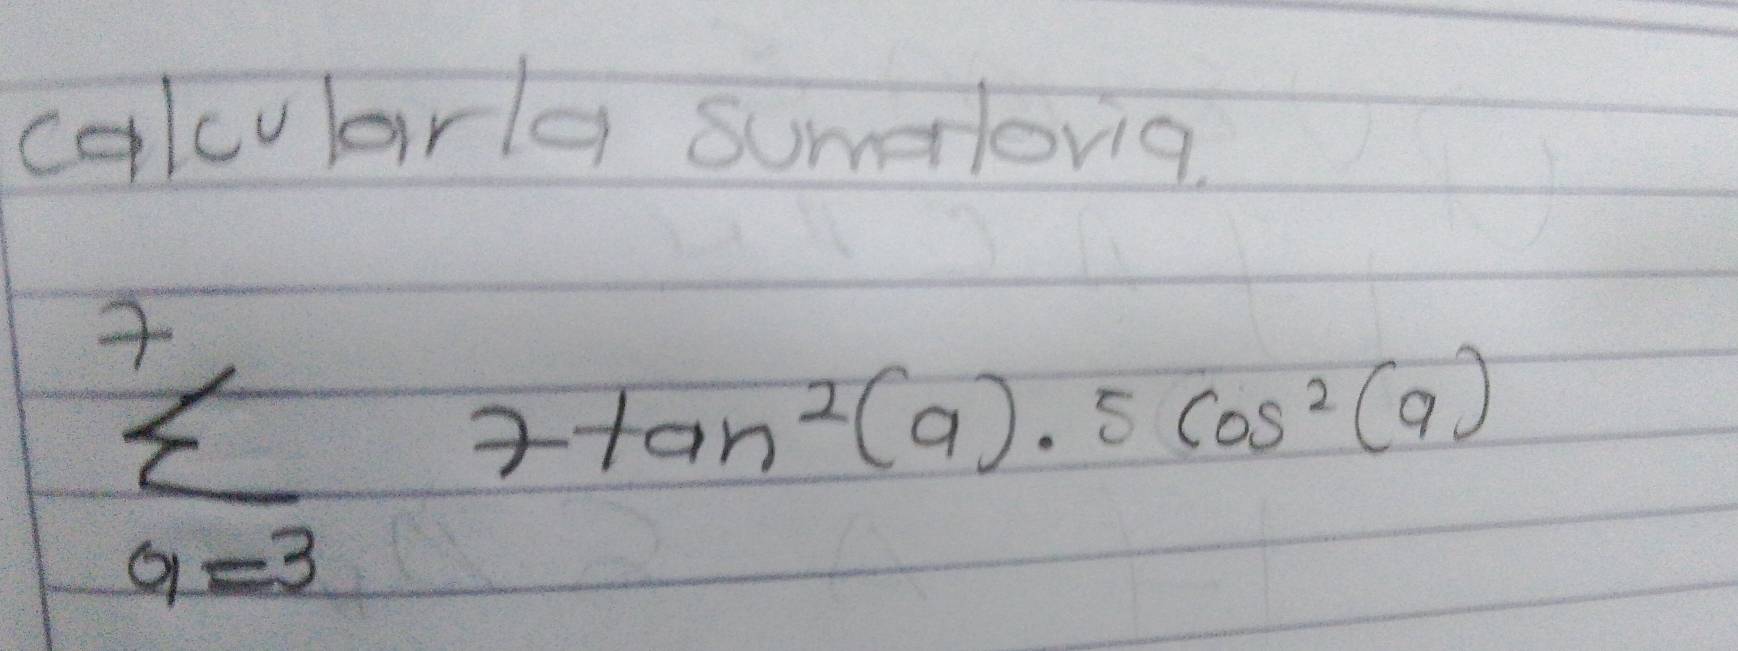 calcular la sumatoria.
7
Σ 7 tan²(a) . 5 cos²(a)
a=3